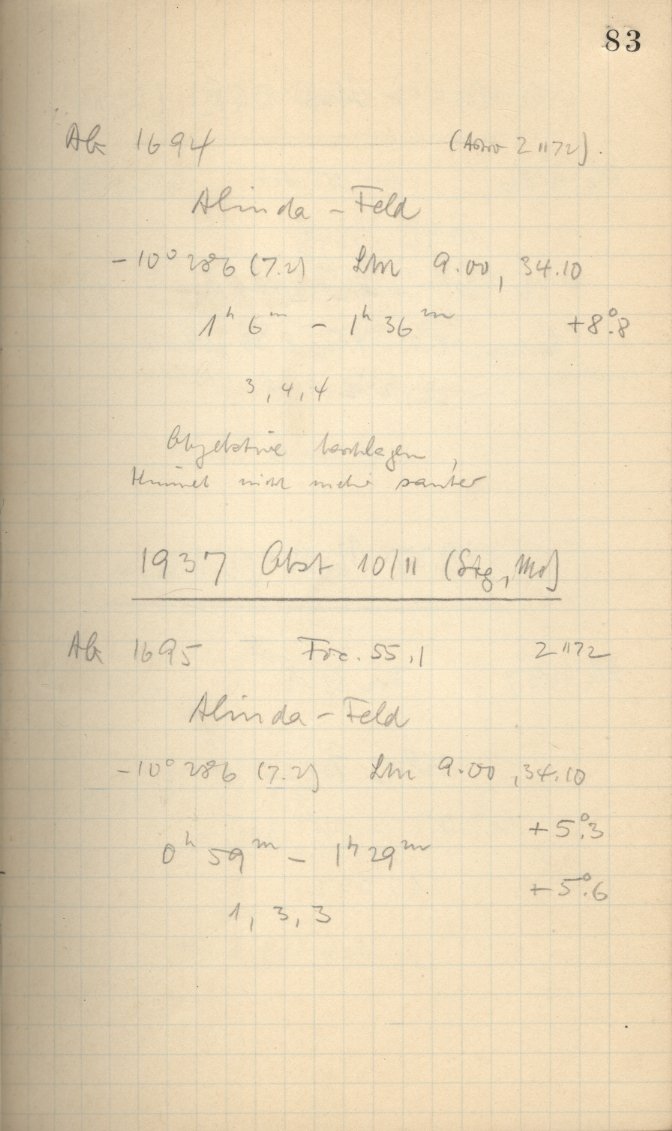 83
Ab 1694 (Astro 2"72).
Alinda - Feld
-10° 286 (7.2) Lm 9.00, 34.10
1h 6m - 1h 36m +8°.8
3, 4, 4
Objektive beschlagen,
Himmel nicht mehr sauber
1937 Okt 10/11
Ab 1695 Foc. 55,1 2"72
Alinda - Feld
-10° 286 (7.2) Lm 9.00, 34.10
+5°.3
0h 59m - 1h 29m
+5°.6
1, 3, 3